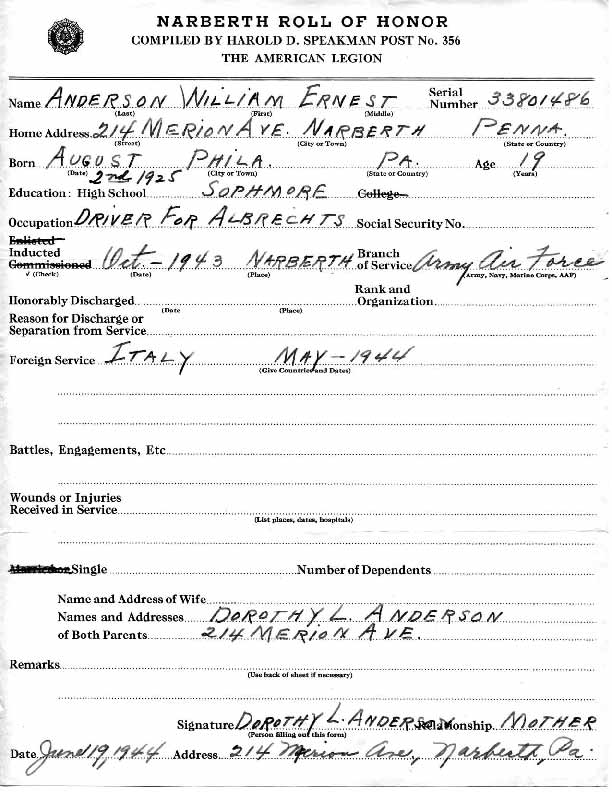 NARBERTH ROLL OF HONOR
COMPILED BY HAROLD D. SPEAKMAN POST No. 356
THE AMERICAN LEGION
Name ANDERSON WILLIAM ERNEST Serial Number 33801486
(Last) (First) (Middle)
Home Address 214 MERION AVE. NARBERTH PENNA.
(Street) (City or Town) (State or Country)
Born AUGUST PHILA. PA. Age 19
(Date) 2nd 1925 (City or Town) (State or Country) (Years)
Education: High School SOPHMORE College
Occupation DRIVER FOR ALBRECHTS Social Security No.
Enlisted
Inducted Oct. - 1943 NARBERTH Branch
Commissioned of Service Army Air Force
√ (Check) (Date) (Place) (Army, Navy, Marine Corps, AAF)
Honorably Discharged Rank and Organization
(Date (Place)
Reason for Discharge or
Separation from Service
Foreign Service ITALY MAY - 1944
(Give Countries and Dates)
Battles, Engagements, Etc
Wounds or Injuries
Received in Service
(List places, dates, hospitals)
Single Number of Dependents
Name and Address of Wife
Names and Addresses DOROTHY L. ANDERSON
of Both Parents 214 MERION AVE.
Remarks
(Use back of sheet if necessary)
Signature DOROTHY L. ANDERSON Relationship MOTHER
(Person filling out this form)
Date June 19, 1944 Address 214 Merion Ave, Narberth, Pa.